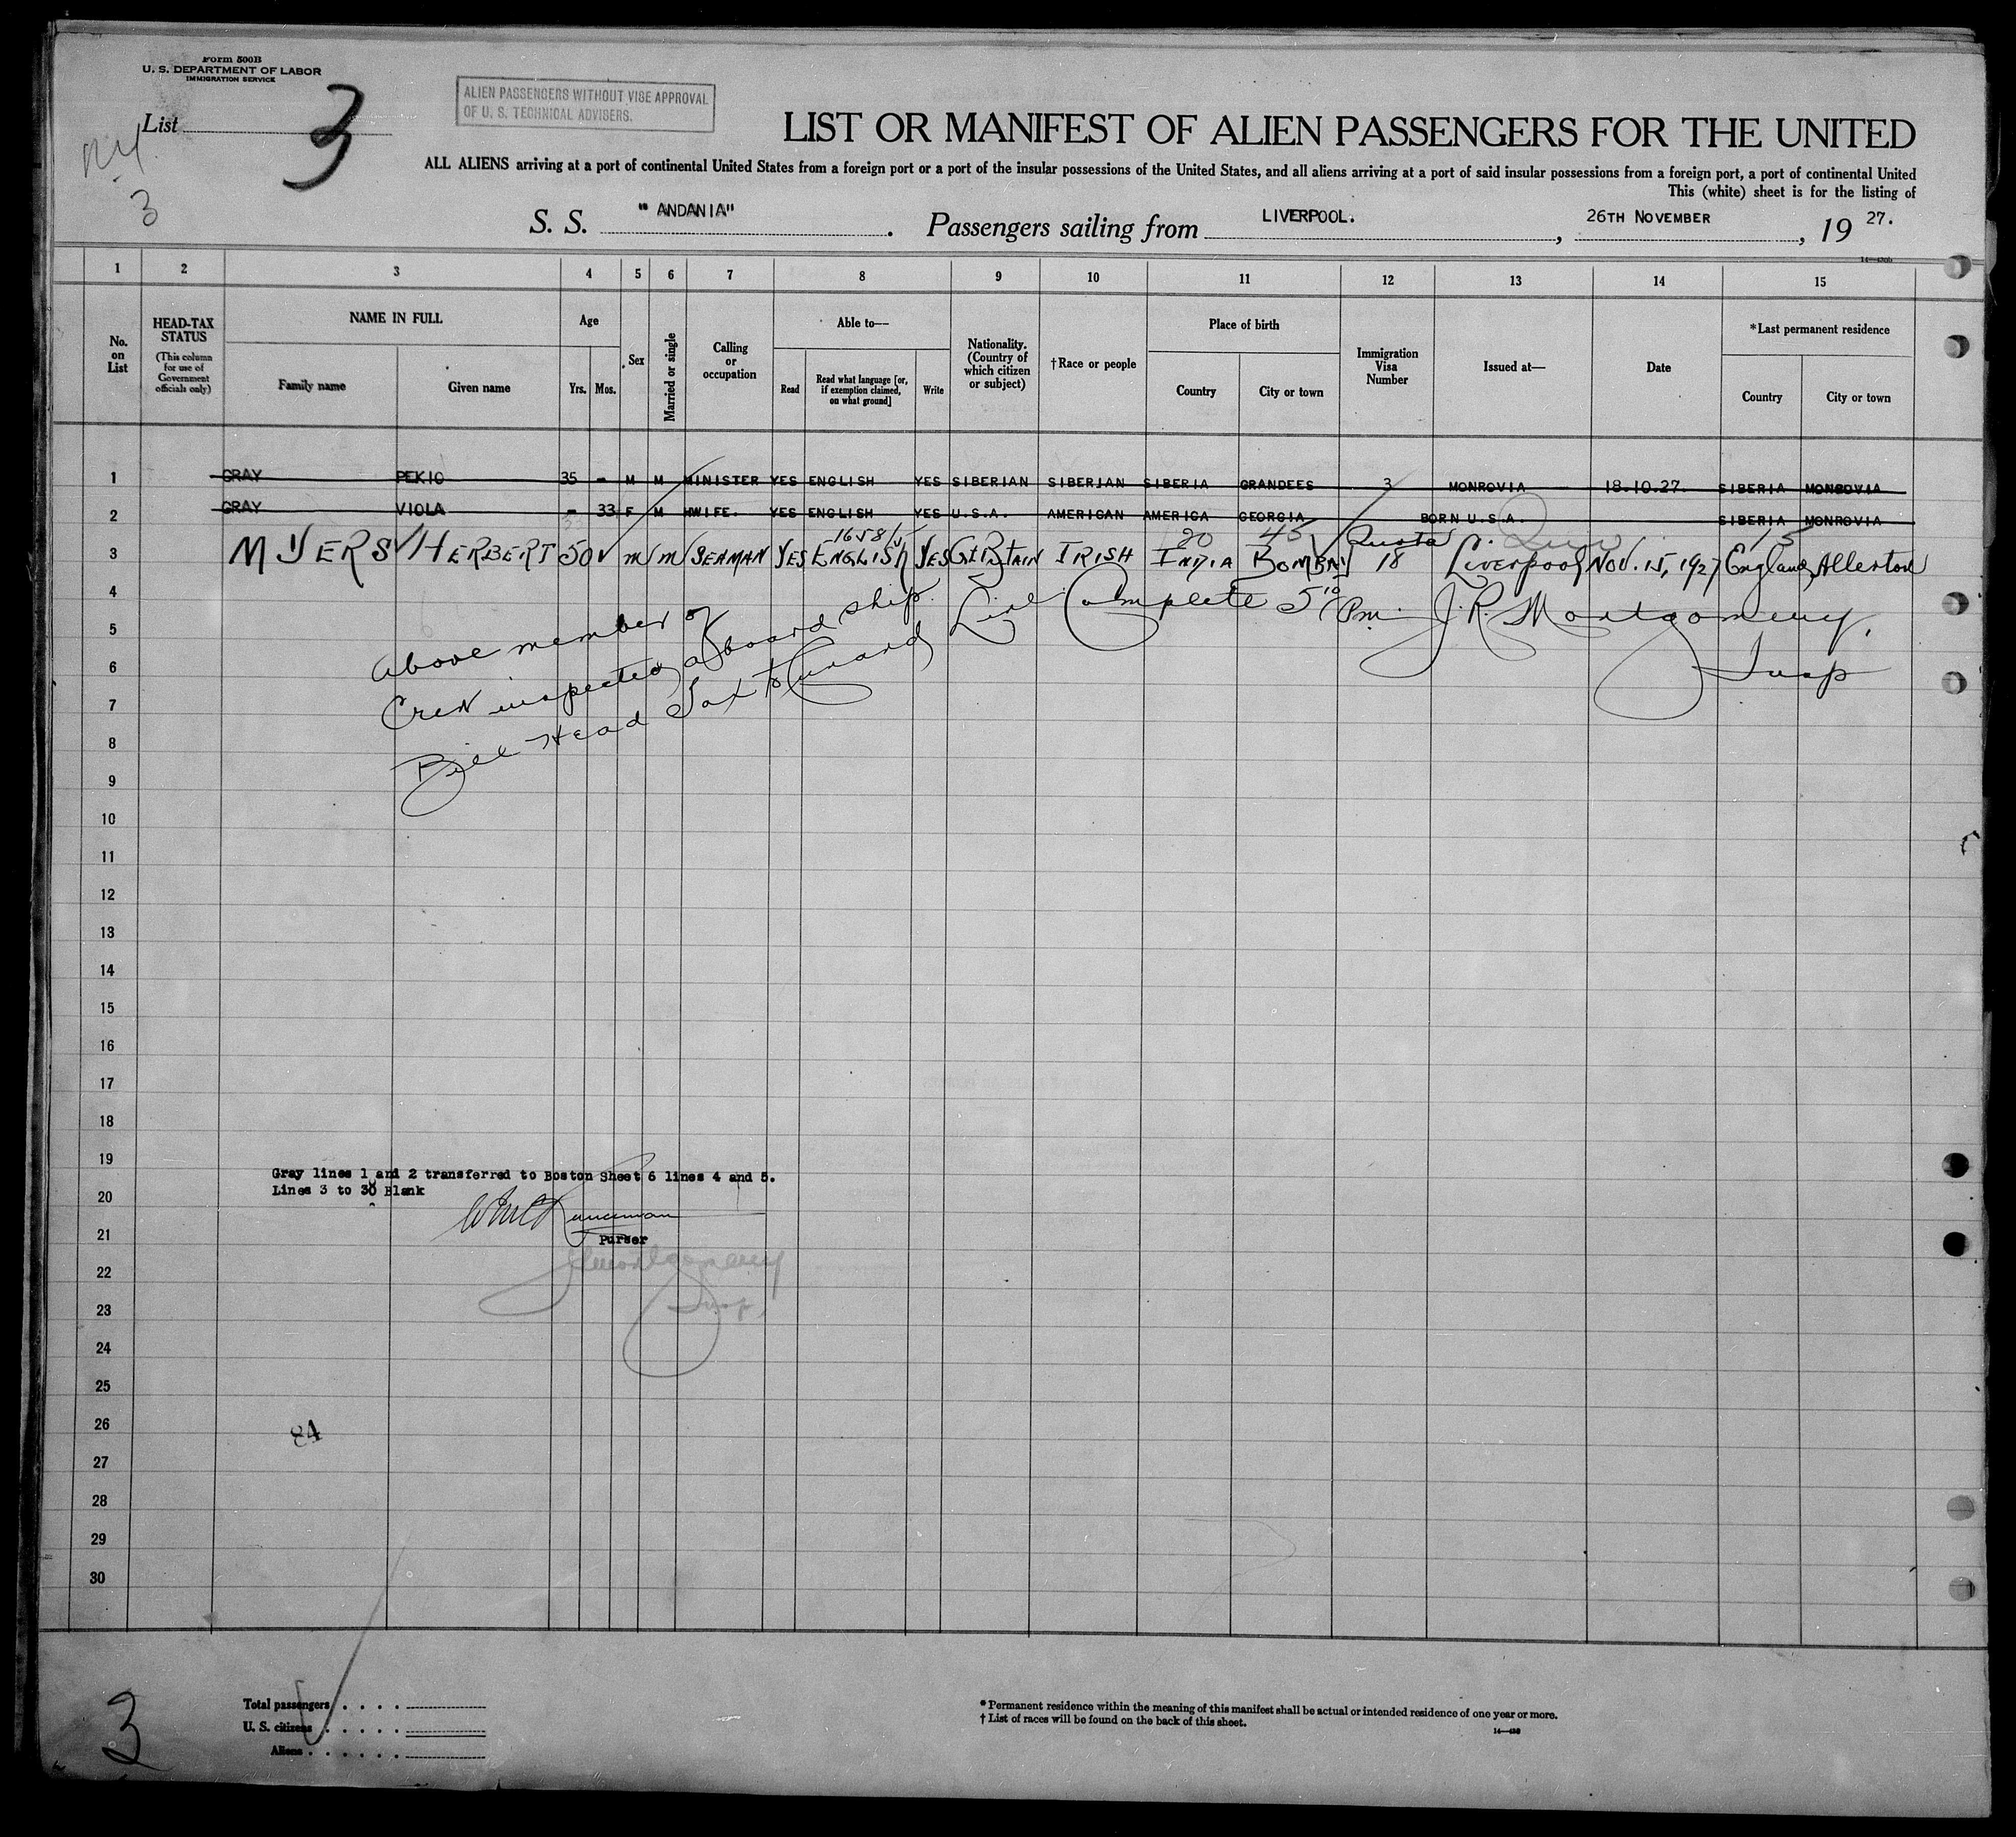 Form 500B
U. S. DEPARTMENT OF LABOR
IMMIGRATION SERVICE
List 3
3
ALIEN PASSENGERS WITHOUT VISE APPROVAL
OF U. S. TECHNICAL ADVISERS.
LIST OR MANIFEST OF ALIEN PASSENGERS FOR THE UNITED
ALL ALIENS arriving at a port of continental United States from a foreign port or a port of the insular possessions of the United States, and all aliens arriving at a port of said insular possessions from a foreign port, a port of continental United
This (white) sheet is for the listing of
S. S. "ANDANIA". Passengers sailing from LIVERPOOL., 26TH NOVEMBER, 19 27.
1 2 3 4 5 6 7 8 9 10 11 12 13 14 15
No. on List
HEAD-TAX STATUS
(This column for use of Government officials only)
NAME IN FULL
Family name Given name
Age
Yrs. Mos.
Sex
Married or single
Calling or occupation
Able to—
Read Read what language [or, if exemption claimed, on what ground] Write
Nationality. (Country of which citizen or subject)
†Race or people
Place of birth
Country City or town
Immigration Visa Number
Issued at—
Date
*Last permanent residence
Country City or town
1 GRAY PEKIO 35 - M M MINISTER YES ENGLISH YES SIBERIAN SIBERIAN SIBERIA GRANDEES 3 MONROVIA 18.10.27. SIBERIA MONROVIA
2 GRAY VIOLA - 33 F M HWIFE. YES ENGLISH YES U.S.A. AMERICAN AMERICA GEORGIA BORN U.S.A. SIBERIA MONROVIA
20 45 Quota 15
3 MYERS HERBERT 50 M M SEAMAN YES ENGLISH YES GT BTAIN IRISH INDIA BOMBAY 18 Liverpool Nov. 15, 1927 England Allerton
4
5
6
7
8
9
10
11
12
13
14
15
16
17
18
19
20
21
22
23
24
25
26
27
28
29
30
Above member of
Crew inspected aboard ship.
Bill Head Tax to Cunard
Line Complete 5 10 Pm. J. R. Montgomery,
Insp
Gray lines 1 and 2 transferred to Boston Sheet 6 lines 4 and 5.
Lines 3 to 30 Blank
Purser
Montgomery
Insp.
84
3
Total passengers
U. S. citizens
Aliens
* Permanent residence within the meaning of this manifest shall be actual or intended residence of one year or more.
† List of races will be found on the back of this sheet.